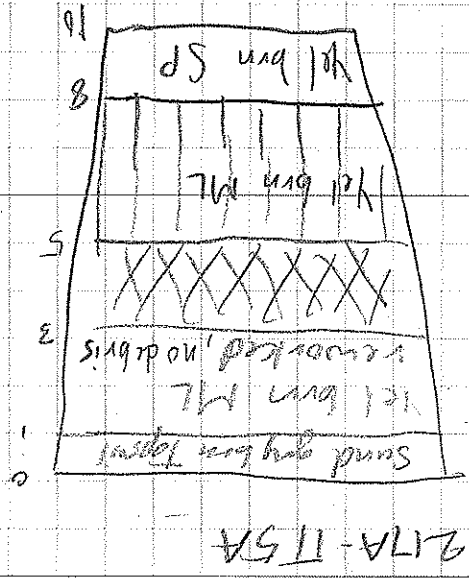 217A-TT5A
0
Sand gry brn Topsoil
1
Yel brn ML
reworked, no debris
3
5
Yel brn ML
8
Yel brn SP
10